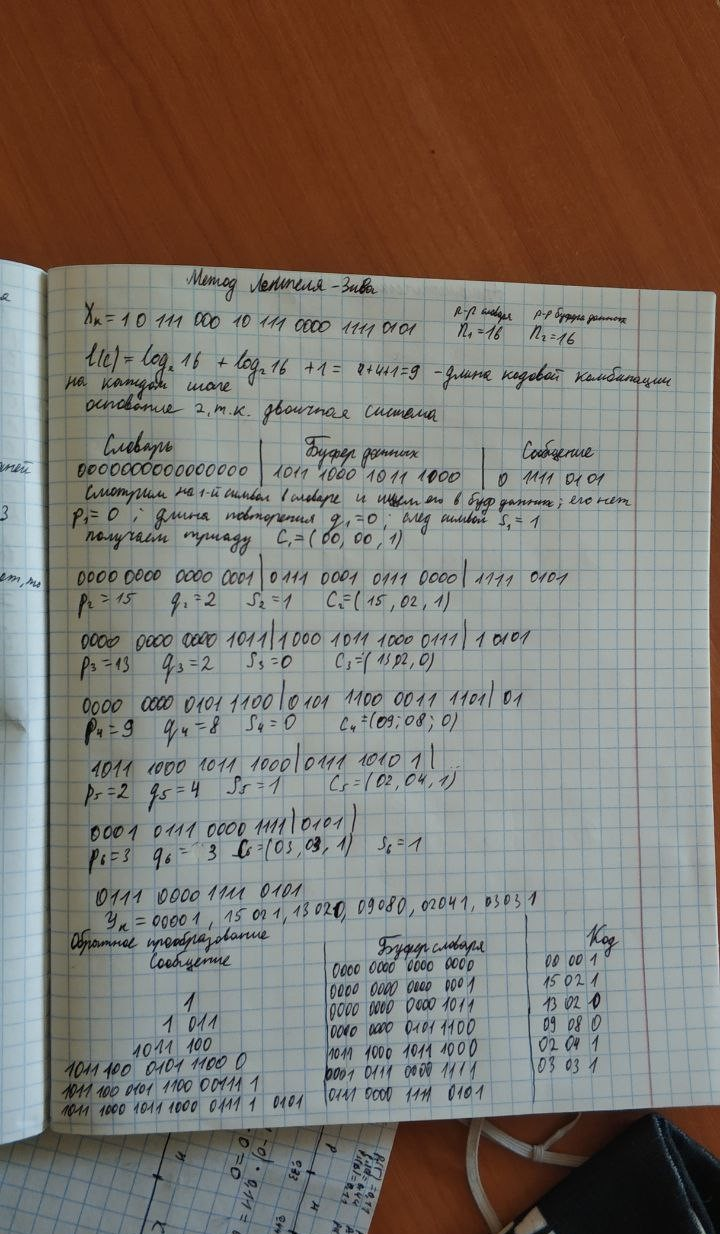 Метод Лемпеля-Зива
Xк = 1 0 111 000 10 111 0000 1111 0101
р-р словаря р-р буфера данных
n₁=16 n₂=16
l(c) = log₂ 16 + log₂ 16 + 1 = 4+4+1=9 - длина кодовой комбинации
на каждом шаге
основание 2, т.к. двоичная система
Словарь | Буфер данных | Сообщение
0000000000000000 | 1011 1000 1011 1000 | 0 1111 0101
Смотрим на 1-й символ в словаре и ищем его в буф данных; его нет
p₁=0 ; длина повторения q₁=0 ; след символ S₁=1
получаем триаду C₁=(00, 00, 1)
0000 0000 0000 0001 | 0111 0001 0111 0000 | 1111 0101
p₂=15 q₂=2 S₂=1 C₂=(15, 02, 1)
0000 0000 0000 1011 | 1000 1011 1000 0111 | 1 0101
p₃=13 q₃=2 S₃=0 C₃=(13,02, 0)
0000 0000 0101 1100 | 0101 1100 0011 1101 | 01
p₄=9 q₄=8 S₄=0 C₄=(09; 08; 0)
1011 1000 1011 1000 | 0111 1010 1 |
p₅=2 q₅=4 S₅=1 C₅=(02, 04, 1)
0001 0111 0000 1111 | 0101 |
p₆=3 q₆= 3 C₆=(03, 03, 1) S₆=1
0111 0000 1111 0101
Yк = 00001, 15021, 13020, 09080, 02041, 03031
Обратное преобразование
Сообщение Буфер словаря Код
0000 0000 0000 0000 00 00 1
1 0000 0000 0000 0001 15 02 1
1 011 0000 0000 0000 1011 13 02 0
1011 100 0000 0000 0101 1100 09 08 0
1011 100 0101 1100 0 1011 1000 1011 1000 02 04 1
1011 100 0101 1100 00111 1 0001 0111 0000 1111 03 03 1
1011 1000 1011 1000 0111 1 0101 0111 0000 1111 0101